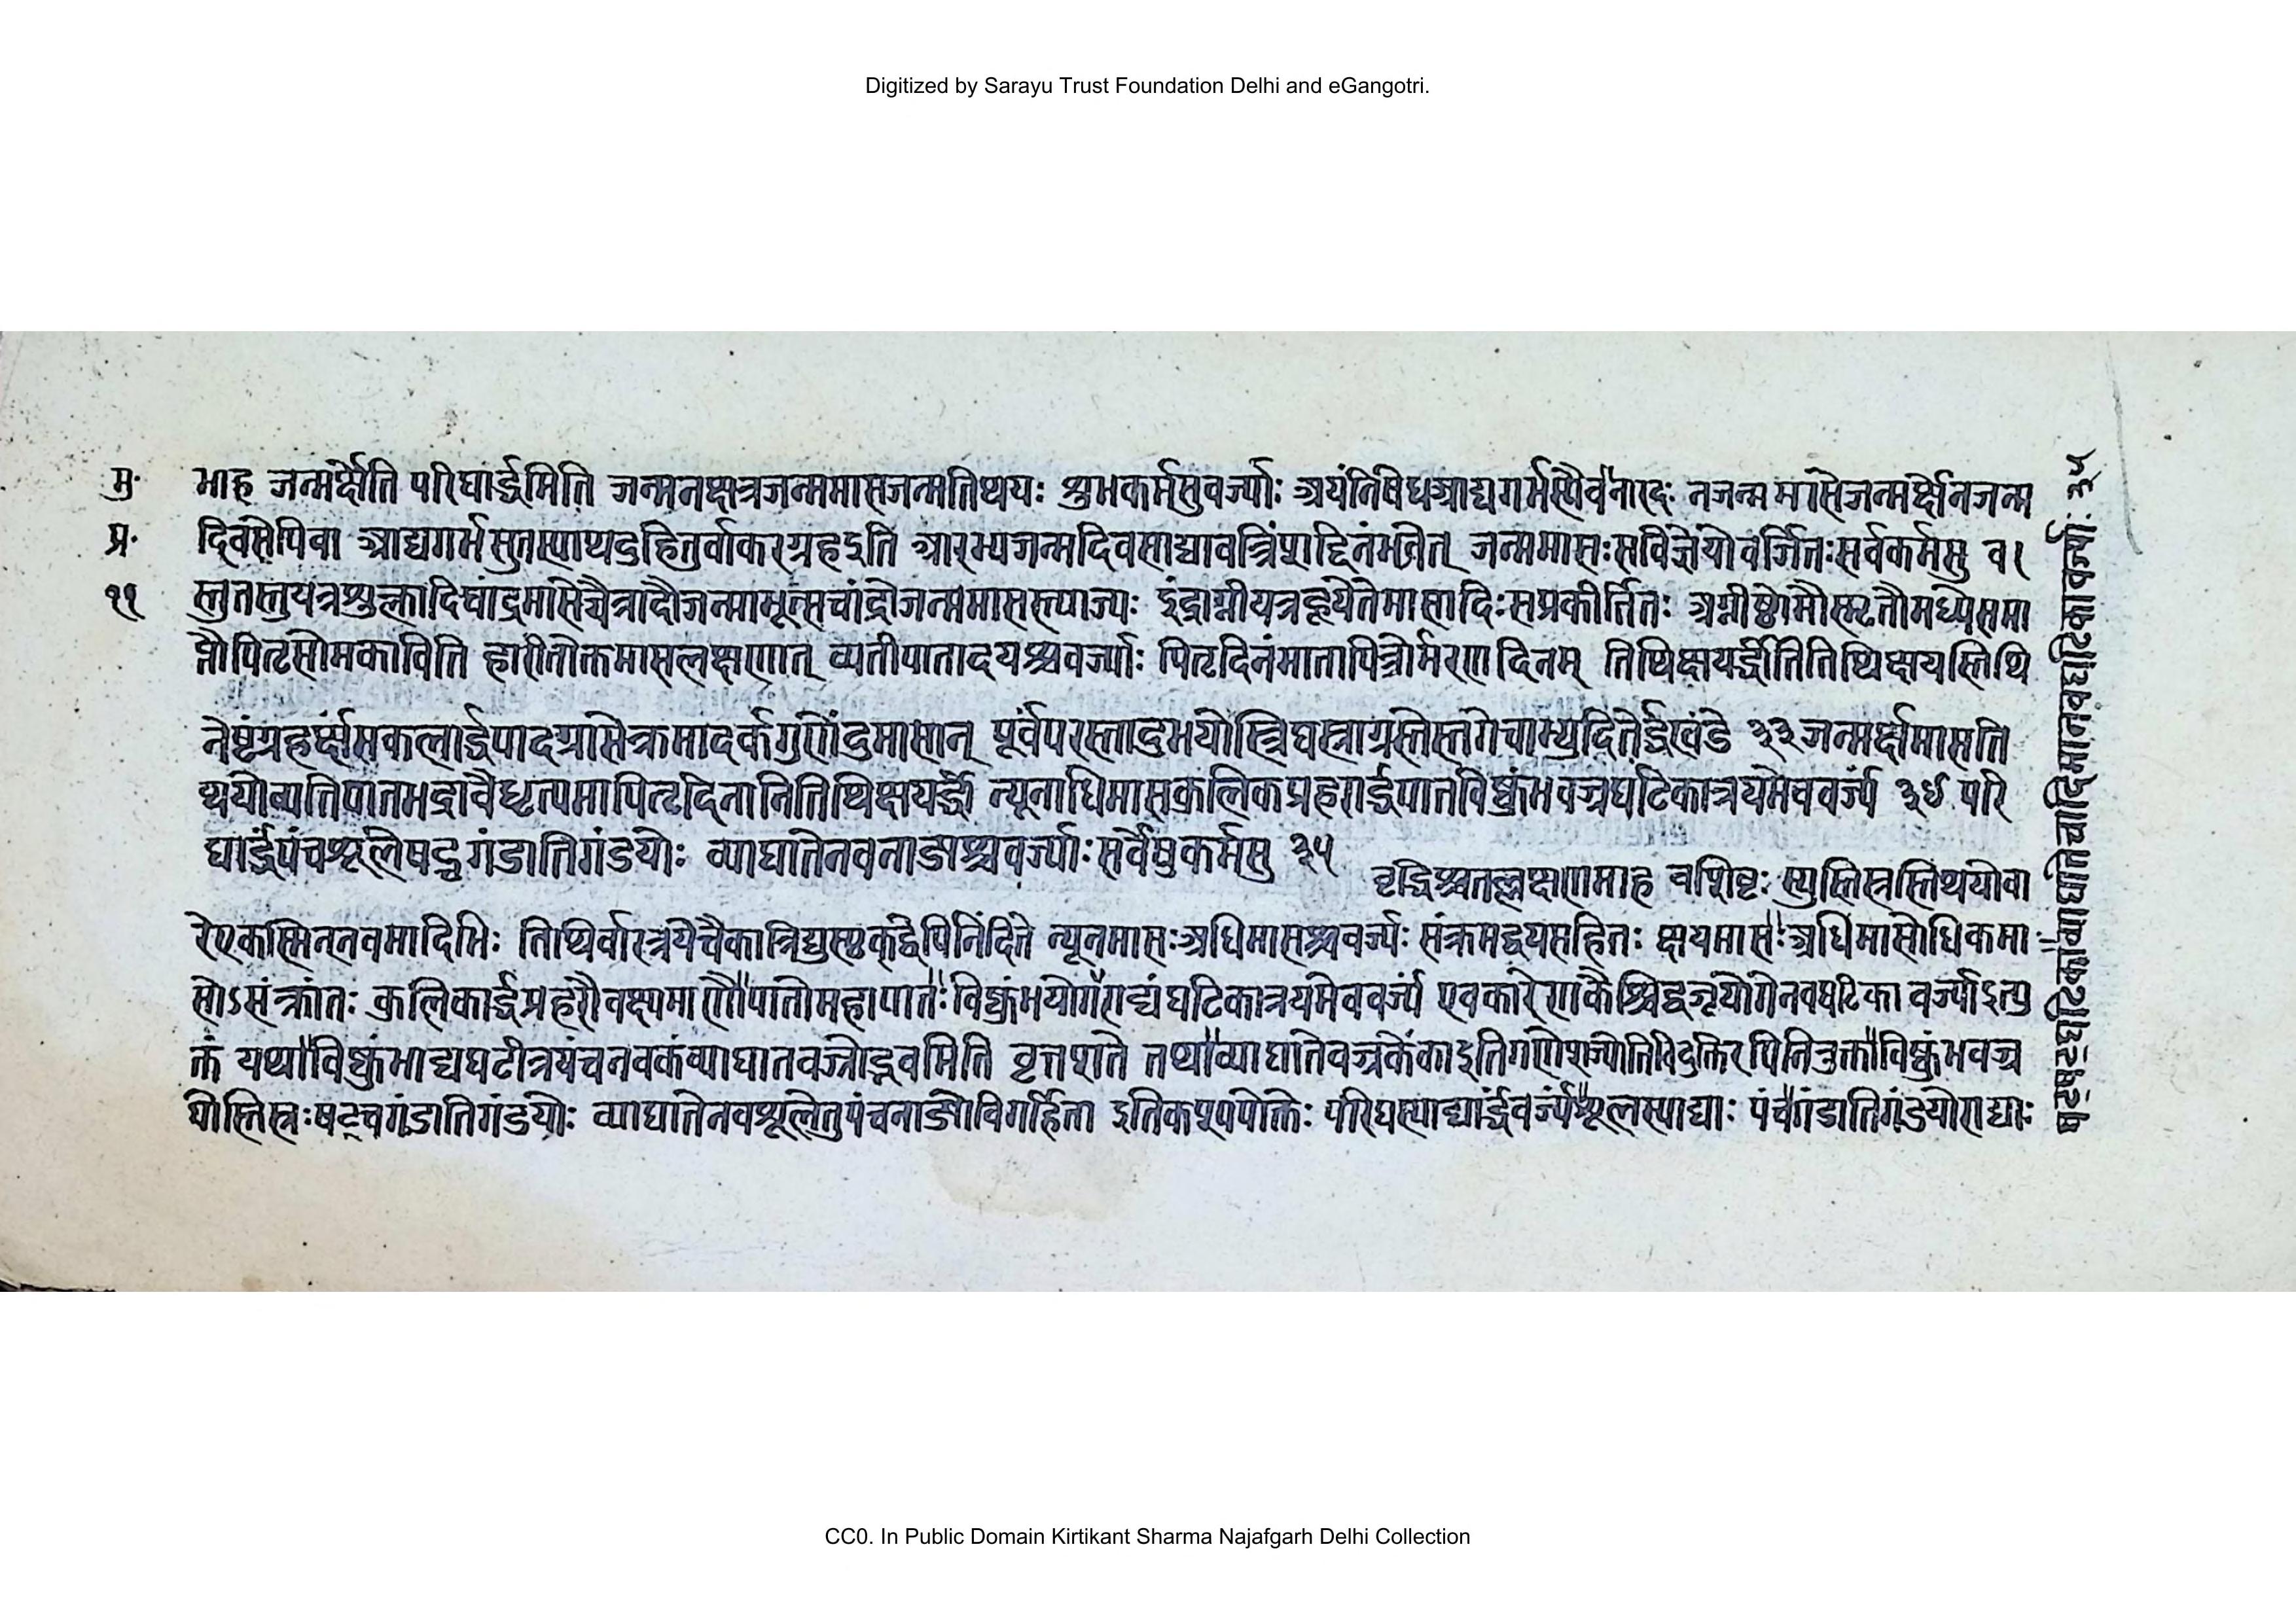 Digitized by Sarayu Trust Foundation Delhi and eGangotri.
मु॰ भाह जन्मर्क्षेति परिघार्द्धमिति जन्मनक्षत्रजन्ममासजन्मतिथयः शुभकर्मसुवर्ज्याः अयंनिषेधआद्यगर्भस्यैव नारदः नजन्ममासेजन्मर्क्षेनजन्म
प्र॰ दिवसेपिवा आद्यगर्भसुतस्याथदुहितुर्वाकरग्रहइति आरभ्यजन्मदिवसाद्यावत्त्रिंशद्दिनंभवेत् जन्ममासःसविज्ञेयोवर्जितःसर्वकर्मसु व।
११ स्तुतस्तुयत्रशुक्लादिचांद्रमासेचैत्रादौजन्माभूत्सचांद्रोजन्ममासस्त्याज्यः इंद्राग्नीयत्रहूयेतेमासादिःसप्रकीर्तितः अग्नीषोमौस्मृतौमध्येसमा
प्तौपितृसोमकाविति हारीतोक्तमासलक्षणात् व्यतीपातादयश्चवर्ज्याः पितृदिनंमातापित्रोर्मरणदिनम् तिथिक्षयर्द्धीतितिथिक्षयस्तिथि
नेष्टंग्रहर्क्षंसकलार्द्धपादग्रासेक्रमादर्कगुणेंदुमासान् पूर्वंपरस्तादुभयोस्त्रिघस्राग्रस्तेस्तगेचाभ्युदितेर्द्धखंडे ३३ जन्मर्क्षमासति
थयोव्यतिपातभद्रावैधृत्यमापितृदिनानितिथिक्षयर्द्धी न्यूनाधिमासकुलिकप्रहरार्द्धपातविष्कुंभवज्रघटिकात्रयमेववर्ज्यं ३४ परि
घार्द्धंपंचशूलेषट्चगंडातिगंडयोः व्याघातेनवनाडाश्चवर्ज्याःसर्वेषुकर्मसु ३५
वृद्धिश्चतल्लक्षणमाह वशिष्टः स्युस्तिस्रस्तिथयोवा
रेएकस्मिन्नवमादिभिः तिथिर्वारत्रयेचैकात्रिद्युस्पृक्द्वेपिनिंदिते न्यूनमासःअधिमासश्चवर्ज्यः संक्रमद्वयसहितः क्षयमासःअधिमासोधिकमा
सोऽसंक्रांतः कुलिकार्द्धप्रहरौवक्ष्यमाणौपातोमहापातःविष्कुंभयोग घटिकात्रयमेववर्ज्यं एवकारेणकैश्चिद्वज्रयोगेनवघटिका वर्ज्याइत्यु
क्तं यथाविष्कुंभाद्यघटीत्रयंचनवकंव्याघातवज्रोद्भवमिति तथाव्याघाते विष्कुंभवज्र
योस्तिस्रःषट्चगंडातिगंडयोः व्याघातेनवशूलेतुपंचनाड्योविगर्हिता इतिकश्यपोक्तेः परिघस्याद्यार्द्धंवर्ज्यंशूलस्याद्याः पंचगंडातिगंडयोराद्याः
CC0. In Public Domain Kirtikant Sharma Najafgarh Delhi Collection